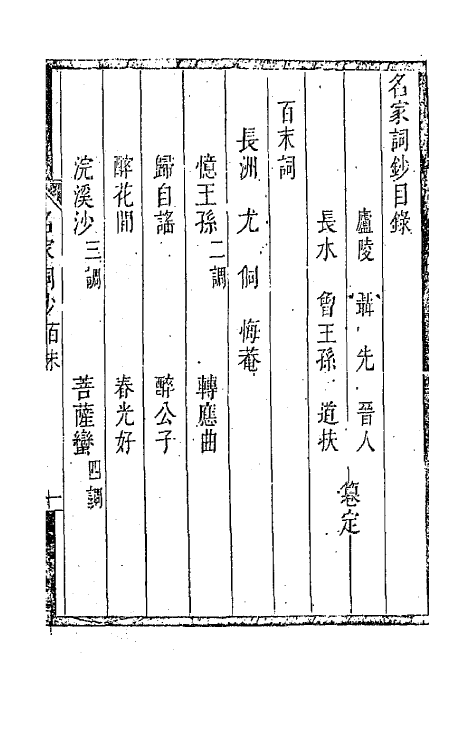 名家詞鈔目錄
廬陵 聶先 晉人
長水 曾王孫 道扶
纂定
百末詞
長洲 尤侗 悔菴
憶王孫二調 轉應曲
歸自謠 醉公子
醉花間 春光好
浣溪沙三調 菩薩蠻四調
名家詞鈔 百末 一